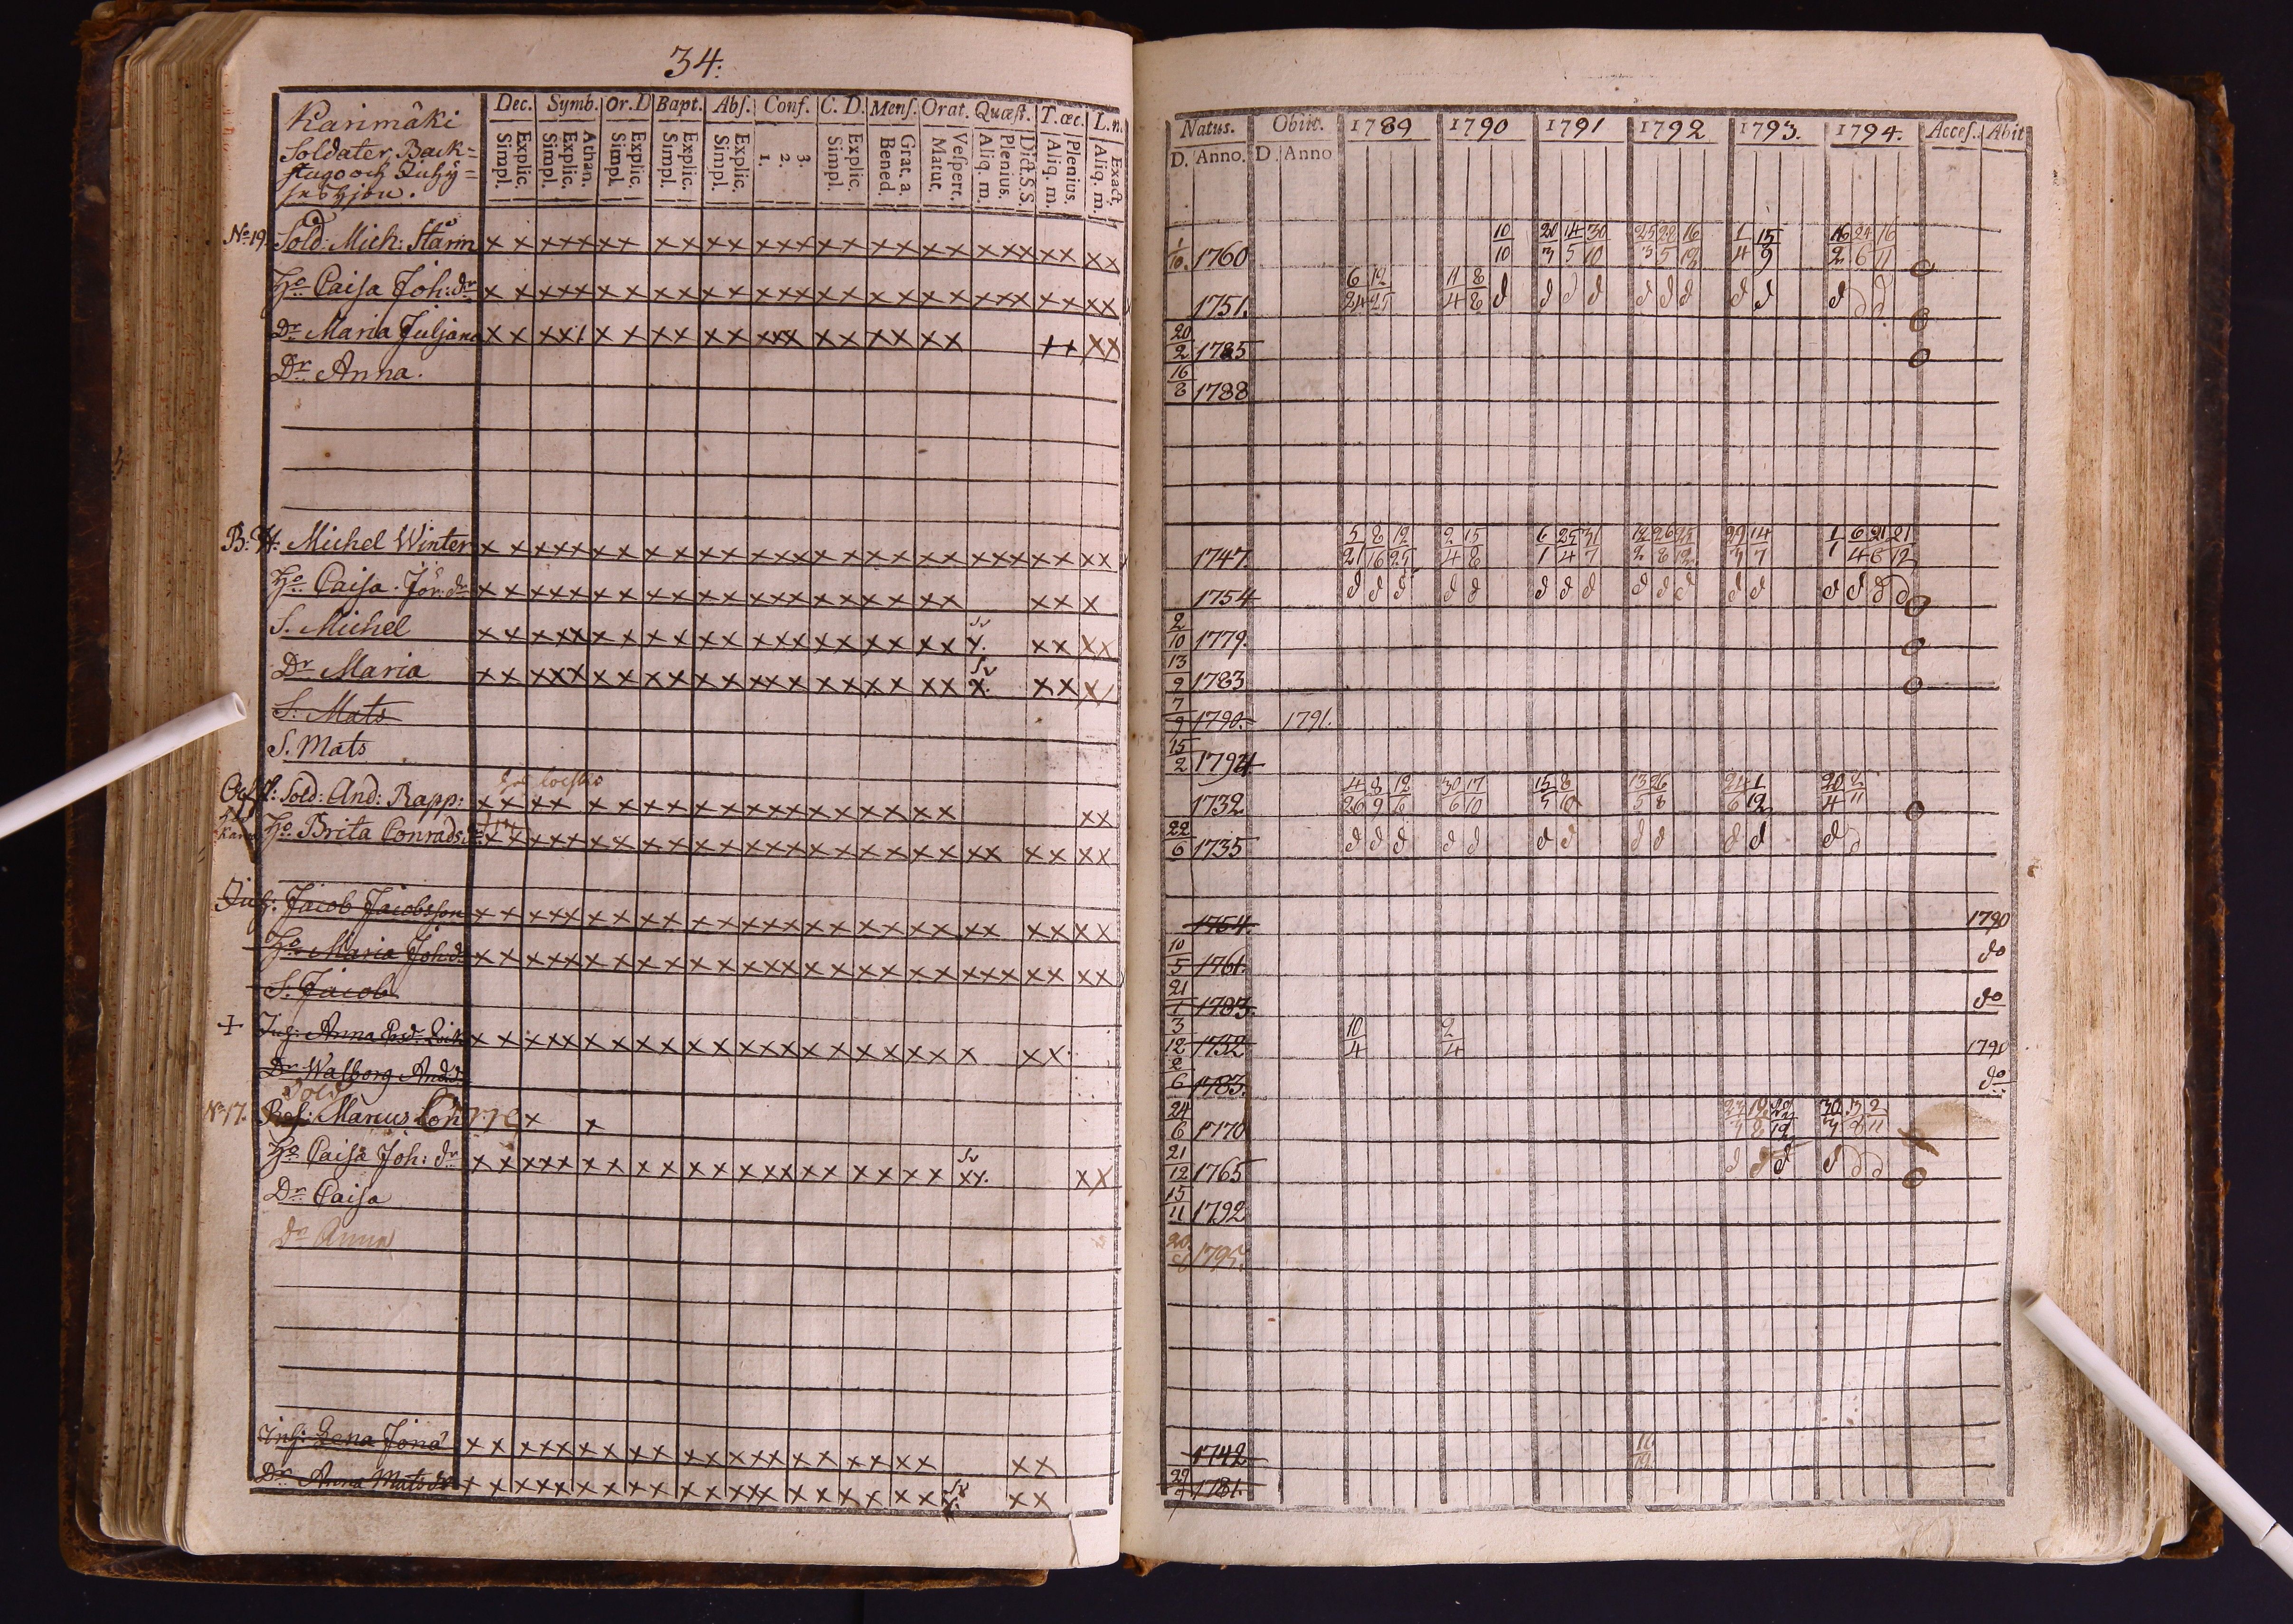 34.
Karimäki
Soldater, Back=
stugo och Inhy=
ses hjon.
Dec. Symb. Or. D Bapt. Abſ. Conf. C. D. Menſ. Orat. Quæſt. T. œc. L. n.
Explic. Simpl. Athan. Explic. Simpl. Explic. Simpl. Explic. Simpl. Explic. Simpl. 3. 2. 1. Explic. Simpl. Grat. a. Bened. Veſpert. Matut. Dict. S. S. Plenius. Aliq. m. Plenius. Aliq. m. Exact. Aliq. m.
Natus. Obiit. 1789 1790 1791 1792 1793. 1794. Acceſ. Abit
D. Anno. D. Anno
No 19. Sold: Mich: Starm 1/10. 1760 10/10 20/3 14/5 30/10 25/3 22/5 16/12 1/4 15/9 16/2 24/6 16/11
Ho Caisa Joh: dr 1751. 6/24 12/25 11/4 8/8 d d d d d d d d d d d d
Dr Maria Juljana 20/2 1785
Dr Anna. 16/8 1788
B: H. Michel Winter 1747. 5/21 8/16 12/25 2/4 15/8 6/1 25/4 31/7 12/2 26/8 25/12 29/3 14/7 1/1 6/4 21/6 21/12
Ho Caisa Jör: dr 1754 d d d d d d d d d d d d d d d d d
S. Michel 2/10 1779.
Dr Maria 13/9 1783
S: Mats 7/9 1790. 1791.
S. Mats 15/2 1794
Sold: And: Rapp: 1732 4/26 8/9 12/6 30/6 17/10 15/5 8/10 13/5 26/8 24/6 1/12 20/4 2/11
Ho Brita Conrads dr 22/6 1735 d d d d d d d d d d d d d
Jacob Jacobsson 1754. 1790
Ho Maria Joh: dr 10/5 1761. do
S. Jacob 21/1 1783. do
+ Anna 3/12 1732 10/4 2/4 1791
Dr Walborg And: dr 2/6 1783. do
No 17. Marcus 24/6 1770
Ho Caisa Joh: dr 21/12 1765 d d d d d d
Dr Caisa 15/11 1792
Dr Anna 1795.
Inh: Lena Jona 1742
Dr Anna Mats dr 29/7 1781.